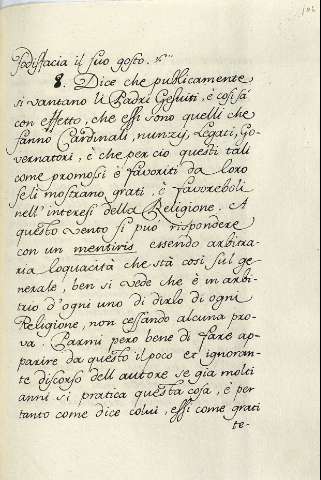 sodisfacia il suo gosto.
8. Dice che publicamente
si vantano li Padri Gesuiti, è cosi sà
con effetto, che essi sono quelli che
fanno Cardinali, nunzij, Legati, Go-
vernatori, è che per ciò questi tali
come promossi è favoriti da loro
se li mostrano grati, è favoreboli
nell'interessi della Religione. A
questo vento si può rispondere
con un mentiris, essendo arbitra-
ria loquacità che stà così sul ge-
nerale, ben si vede che è in arbi-
trio d'ogni uno di dirlo di ogni
Religione, non cessando alcuna pro-
va. Parmi però bene di fare ap-
parire da questo il poco et ignoran-
te discorso dell autore se già molti
anni si pratica questa cosa, è per
tanto come dice colui, essi come grati
te-